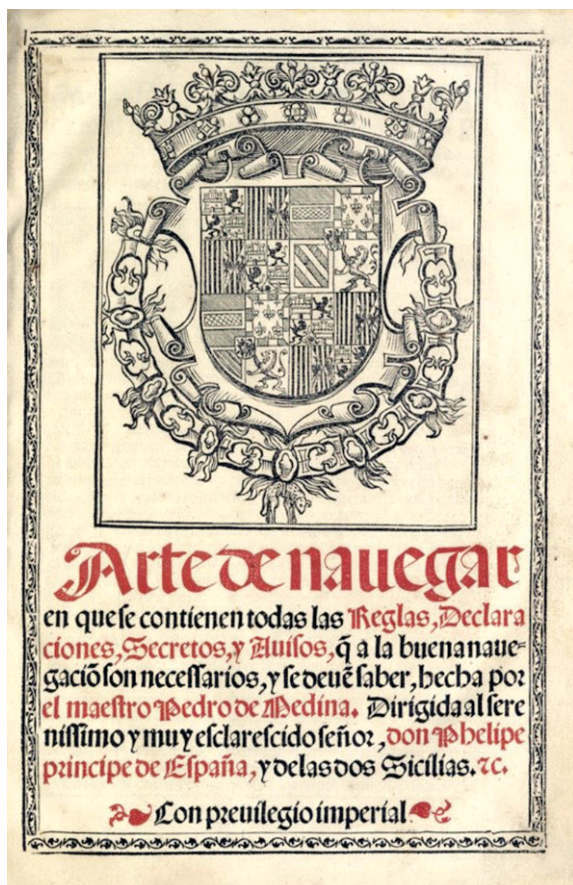 Arte de nauegar
en que se contienen todas las Reglas, Declara
ciones, Secretos, y Auisos, q̃ a la buena naue-
gaciõ son necessarios, y se deuẽ saber, hecha por
el maestro Pedro de Medina. Dirigida al sere
nissimo y muy esclarescido señor, don Phelipe
principe de España, y delas dos Sicilias. ⁊c.
Con preuilegio imperial.